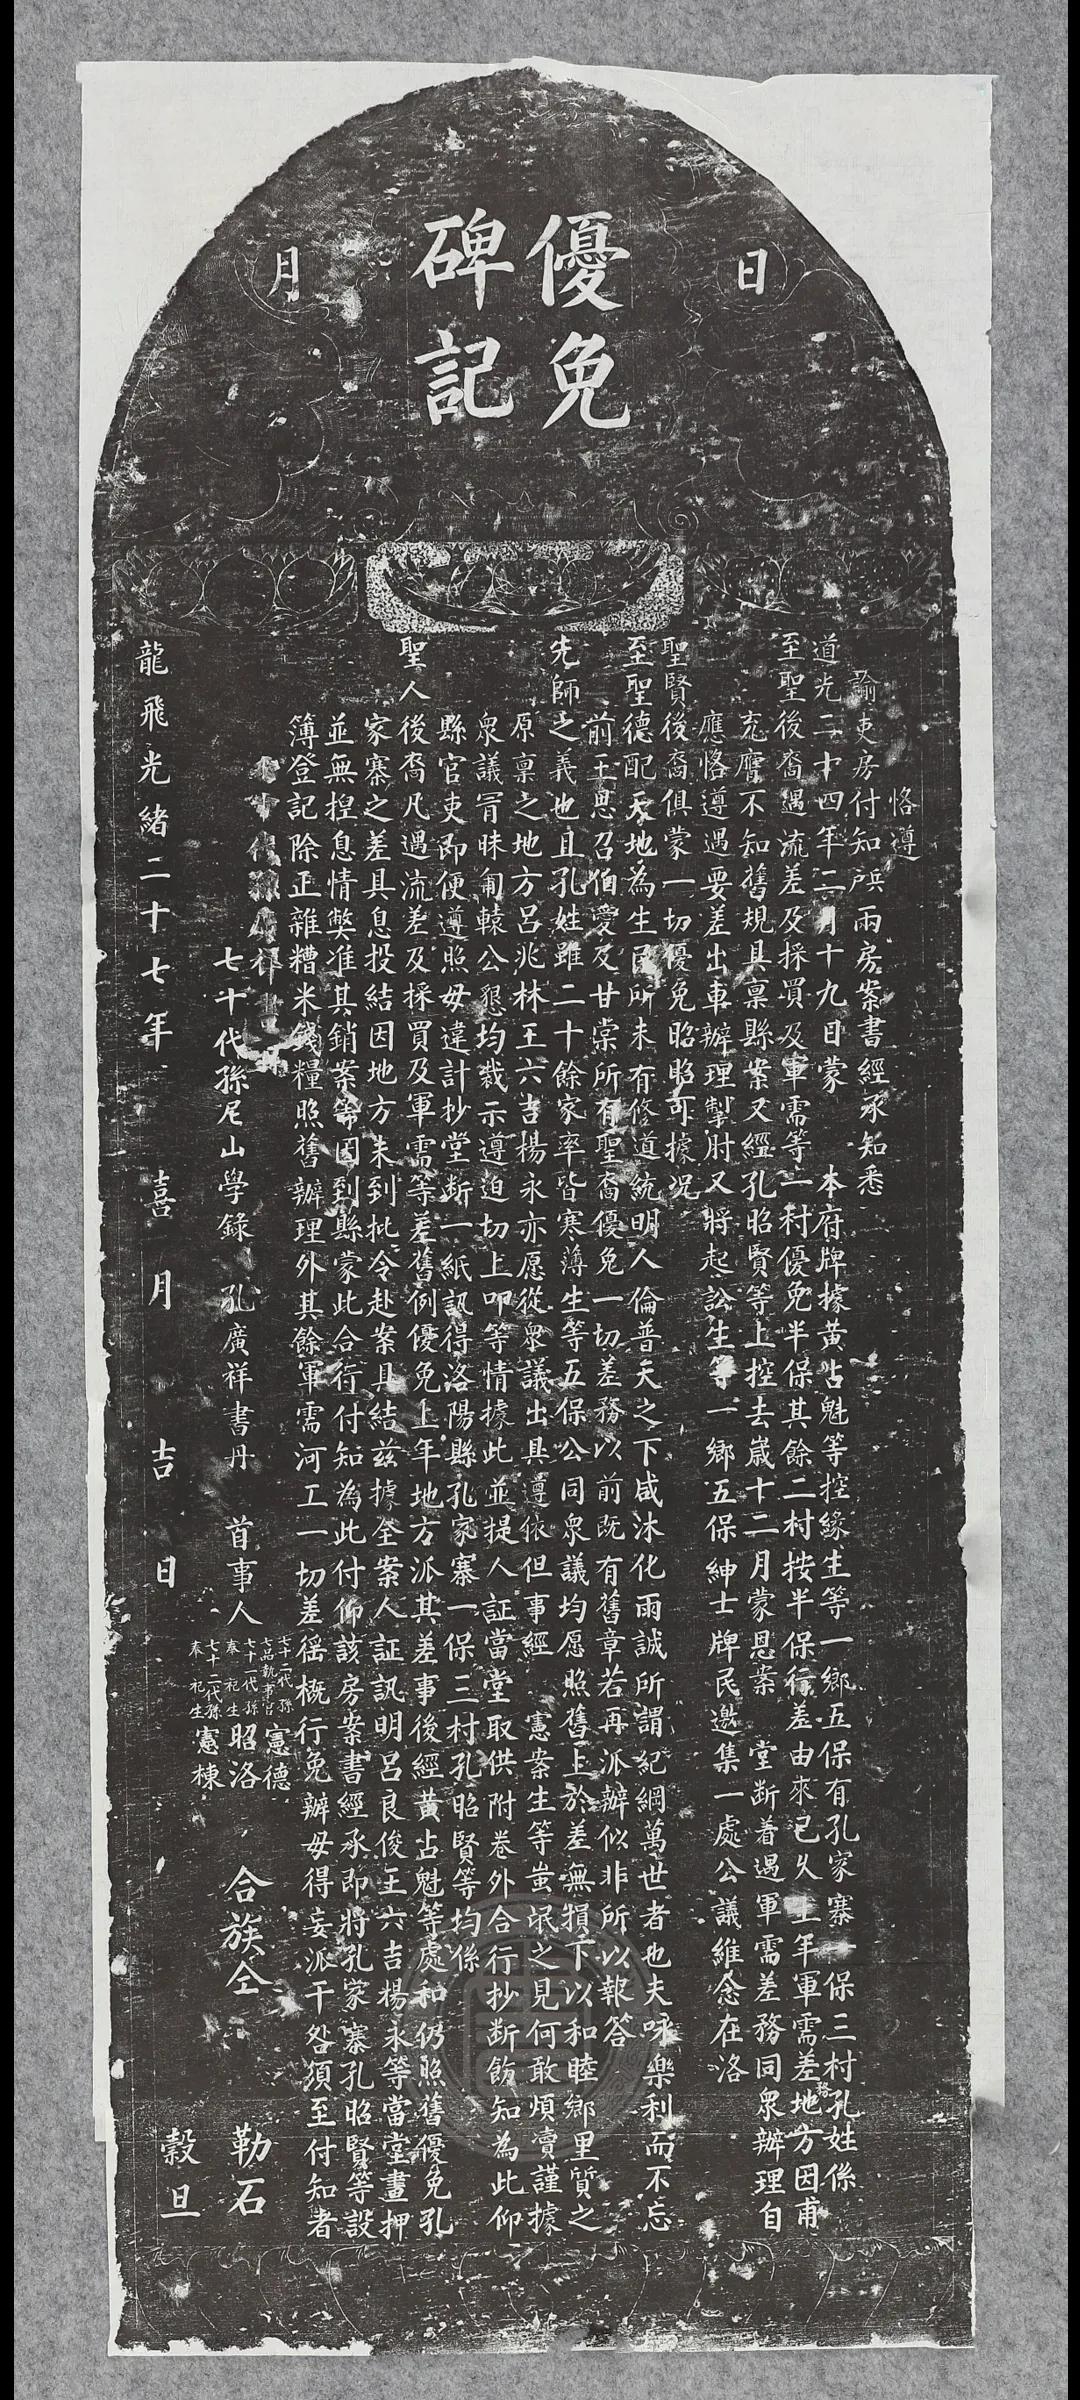 優免
碑記
日
月
恪遵
諭吏房付知戶兵兩房案書經承知悉
道光二十四年二月十九日蒙 本府牌據黃占魁等控緣生等一鄉五保有孔家寨一保三村孔姓係
至聖後裔遇流差及採買及軍需等一村優免半保其餘二村按半保行差由來已久上年軍需差務地方因甫
充膺不知舊規具稟縣案又經孔昭賢等上控去歲十二月蒙恩案 堂斷着遇軍需差務同眾辦理自
應恪遵遇要差出車辦理掣肘又將起訟生等一鄉五保紳士牌民邀集一處公議維念在洛
聖賢後裔俱蒙一切優免昭昭可據況
至聖德配天地為生民所未有修道統明人倫普天之下咸沐化雨誠所謂紀綱萬世者也夫咏樂利而不忘
前王思召伯愛及甘棠所有聖裔優免一切差務以前既有舊章若再派辦似非所以報答
先師之義也且孔姓雖二十餘家率皆寒薄生等五保公同眾議均愿照舊上於差無損下以和睦鄉里質之
原稟之地方呂兆林王六吉楊永亦愿從眾議出具遵依但事經 憲案生等蚩氓之見何敢煩瀆謹據
眾議冒昧匍轅公懇均裁示遵迫切上叩等情據此並提人証當堂取供附卷外合行抄斷飭知為此仰
縣官吏即便遵照毋違計抄堂斷一紙訊得洛陽縣孔家寨一保三村孔昭賢等均係
聖人後裔凡遇流差及採買及軍需等差舊例優免上年地方派其差事後經黃占魁等處和仍照舊優免孔
家寨之差具息投結因地方未到批令赴案具結茲據全案人証訊明呂良俊王六吉楊永等當堂畫押
並無揑息情弊准其銷案等因到縣蒙此合行付知為此付仰該房案書經承即將孔家寨孔昭賢等設
簿登記除正雜糟米錢糧照舊辦理外其餘軍需河工一切差徭概行免辦毋得妄派干咎須至付知者
七十代孫尼山學錄 孔廣祥書丹 首事人
七十二代孫七品執事官憲德
七十一代孫奉祀生昭洛
七十二代孫奉祀生憲棟
合族仝 勒石
龍飛光緒二十七年 喜月 吉日 穀旦